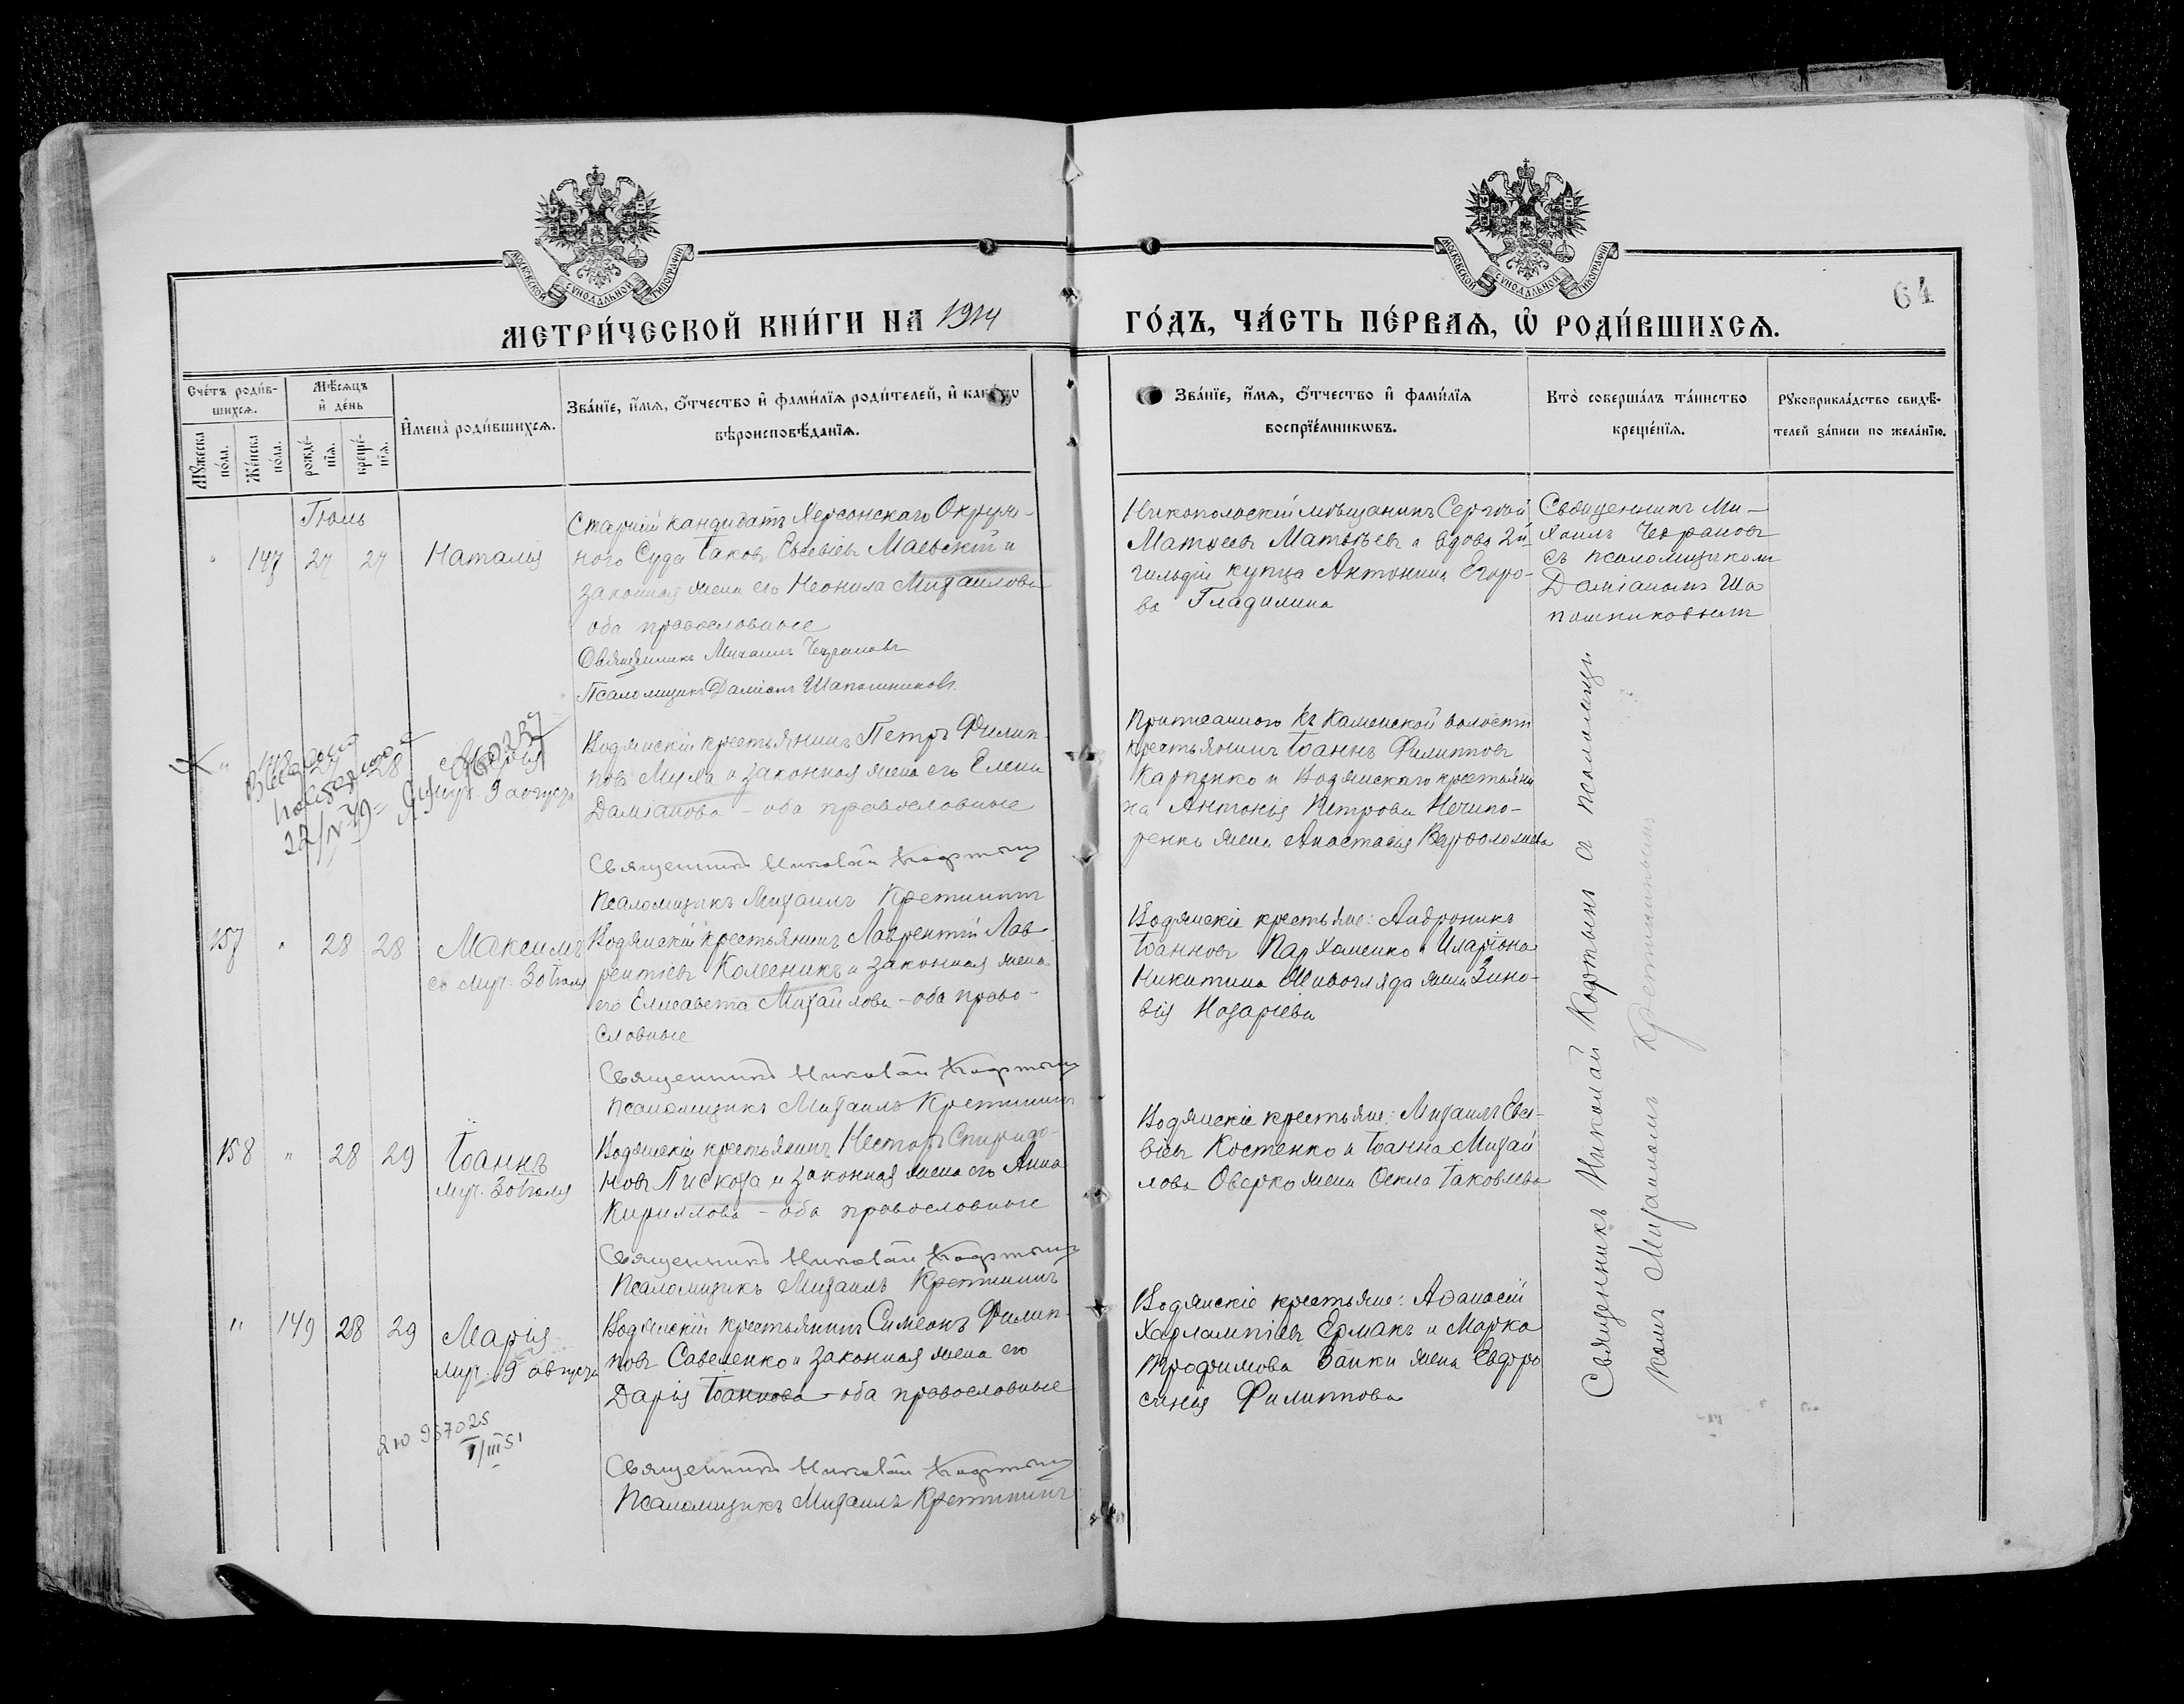 МОСКОВСКОЙ СѴНОДАЛЬНОЙ ТИПОГРАФІИ
МОСКОВСКОЙ СѴНОДАЛЬНОЙ ТИПОГРАФІИ
64
МЕТРИ́ЧЕСКОЙ КНИ́ГИ НА 1914 ГО́ДЪ, ЧА́СТЬ ПЕ́РВАѦ, Ѽ РОДИ́ВШИХСѦ.
Сче́тъ роди́в-
шихсѧ.
Мꙋжеска по́ла.
Же́нска по́ла.
Мѣ́сѧцъ и҆ де́нь
рожде́-нїѧ.
креще́-нїѧ.
И҆мена̀ роди́вшихсѧ.
Зва́нїе, и҆́мѧ, ѻ҆́тчество и҆ фами́лїѧ роди́телей, и҆
вѣроисповѣ́данїѧ.
Зва́нїе, и҆́мѧ, ѻ҆́тчество и҆ фами́лїѧ
воспрїе́мникѡвъ.
Кто̀ соверша́лъ та́инство
креще́нїѧ.
Рꙋкоприкла́дство свидѣ́-
телей за́писи по жела́нїю.
Іюль
" 147 27 27 Наталія
Старшій кандидатъ Херсонскаго Окруж-
ного Суда Іаковъ Евсевіевъ Маевскій и
законная жена его Неонила Михаилова
оба православные
Священникъ Михаилъ
Псаломщикъ Даміанъ Шапошниковъ.
Никопольскій мѣщанинъ Сергѣй
Матѳеевъ Матвѣевъ и вдова 2й
гильдіи купца Антонина Егоро-
ва Гладилина
Священникъ Ми-
хаилъ
съ псаломщикомъ
Даміаномъ Ша
пошниковымъ
" 148 27 28
муч. 9 августа
22/IV 79
Водянскій крестьянинъ Петръ Филип-
повъ и законная жена его Елена
Даміанова - оба православные
Священникъ Николай Кофтынъ
Псаломщикъ Михаилъ Кретининъ
крестьянинъ Іоаннъ Филипповъ
Карпенко и Водянскаго крестьяни
на Антонія Петрова Нечипо-
ренка жена Анастасія Варѳоломеева
157 " 28 28 Максимъ
св муч. 30 Іюля
Водянскій крестьянинъ Лаврентій Лав-
рентіевъ Колесникъ и законная жена
его Елисавета Михайлова - оба право-
славные
Священникъ Николай Кофтынъ
Псаломщикъ Михаилъ Кретининъ
Водянскіе крестьяне: Андроникъ
Іоанновъ Пархоменко и Иларіона
Никитина Живогляда жена Зино-
вія Назаріева
158 " 28 29 Іоаннъ
муч. 30 Іюля
Водянскій крестьянинъ Несторъ Спиридо-
новъ Пискоха и законная жена его Анна
Кириллова - оба православные
Священникъ Николай Кофтынъ
Псаломщикъ Михаилъ Кретининъ
Водянскіе крестьяне: Михаилъ Евсе-
віевъ Костенко и Іоанна Михай
лова Оверко жена Ѳекла Іаковлева
" 149 28 29 Марія
муч. 9 августа
Водянскій крестьянинъ Симеонъ Филип-
повъ Савеленко и законная жена его
Дарія Іоаннова - оба православные
Священникъ Николай Кофтынъ
Псаломщикъ Михаилъ Кретининъ
Водянскіе крестьяне: Аѳанасій
Харлампіевъ Ермакъ и Марка
Трофимова Заики жена Евфро
синія Филиппова
Священникъ Николай Кофтынъ и псаломщи
комъ Михаиломъ Кретининымъ